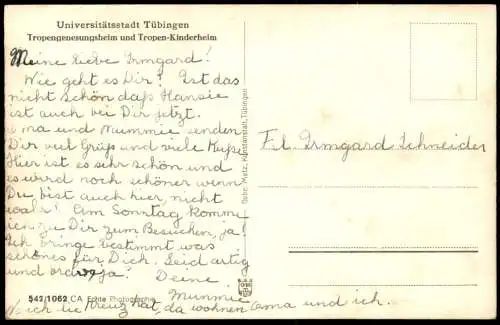 Universitätsstadt Tübingen
Tropengenesungsheim und Tropen-Kinderheim
Meine liebe Irmgard!
Wie geht es Dir? Ist das
nicht schön daß Hansie
ist auch bei Dir jetzt.
Oma und Mummie senden
Dir viel Grüß und viele Küße
Hier ist es sehr schön und
es wird noch schöner wenn
Du bist auch hier, nicht
wahr! Am Sonntag komme
ich zu Dir zum Besuchen, ja!
Ich bringe bestimmt was
schönes für Dich. Seid artig
und ja! Deine
Mummie
542/1062 CA Echte Photographie
Wo ich die Kreuz hat, da wohnen Oma und ich.
Gebr. Metz, Kunstanstalt, Tübingen
Frl. Irmgard Schneider